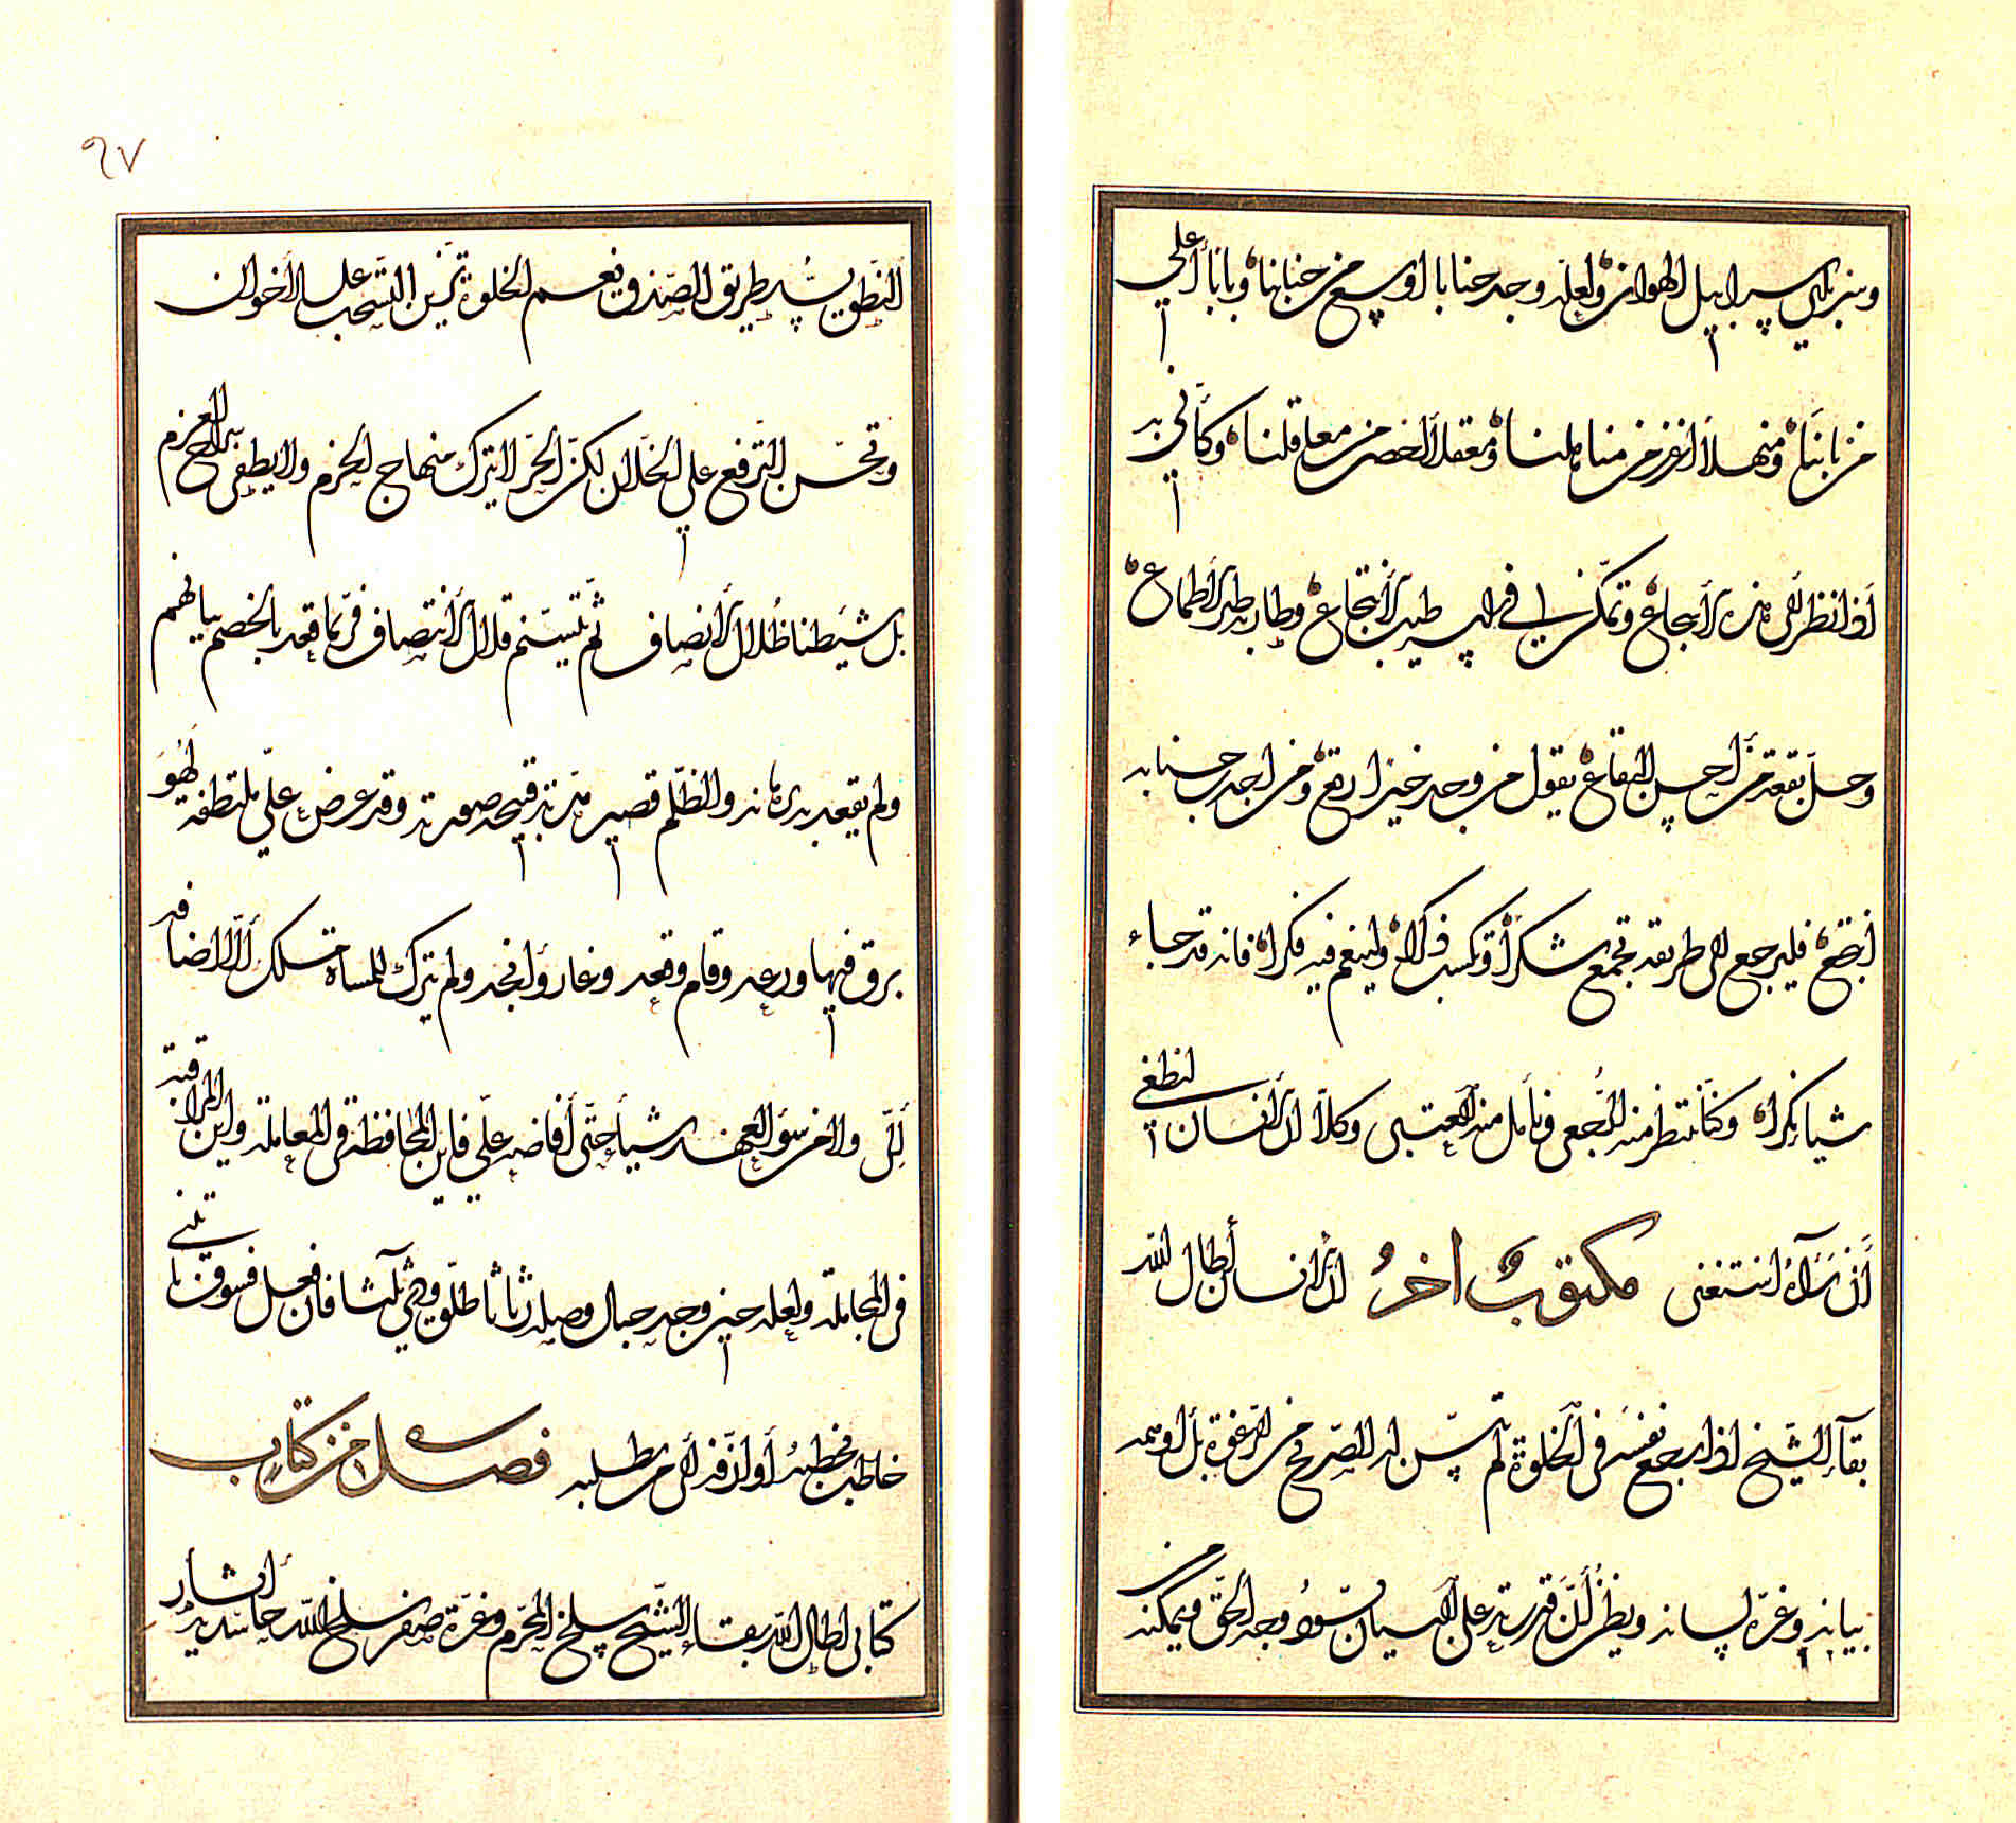 وسربلني سرابيل الهوان ولعله وجد جنابا اوسع من جنابنا وبابا أعلى
من بابنا ومنهلا من مناهلنا ومعقلا من معاقلنا وكأني به
اذا نظر في هذه وتمكن في طيب الانتجاع وطار به طير الاطماع
وحل بقعة من احسن البقاع يقول من وجد خيرا رتع ومن اجدب جنابه
انتجع فليرجع الى طريقه تجمع شكرا وتكسب ذكرا ولينعم فيه فكرا فانه قد جاء
شيا نكرا وكنا ننتظر منه الرجعى ونأمل منه العتبى وكلا ان الانسان ليطغى
أن رآه استغنى مكتوب اخر ان الانسان أطال الله
بقاء الشيخ اذا راجع نفسه في الخلوة لم يتبين له الصريح من الرغوة بل اوهمه
بيانه وغره لسانه ويظن أن قدرته على اللسان تسود وجه الحق ويمكنه من
النطق يسد طريق الصدق ونعم الخلوة تزين التسحب على الأخوان
وتحسن الترفع على الخلان لكن الحر لا يترك منهاج الحزم ولا يطفى سراج العزم
بل ظلال الانصاف ثم يتسنم قلال الانتصاف فربما قعد بالخصم بيانهم
ولم يقعد به برهانه والظلم قصير مدته قبيحة صورته وقد عرض علي ملتطفه لهو
برق فيها ورعد وقام وقعد وغار وأنجد ولم يترك للمساءة مسلك الا اضافه
إلي ولا من سوء العهد شيأ حتى أفاضه علي فاين المحافظة في المعاملة واين المراقبة
في المجاملة ولعله حين وجد حبال وصله رثاثا طلق فان فعل فسوف يأتيني
خاطب يخطبه أو اذن في طلبه فصل من كتاب
كتابي اطال الله بقاء الشيخ سلخ المحرم وغرة صفر سلخ الله حاسديه
٩٧